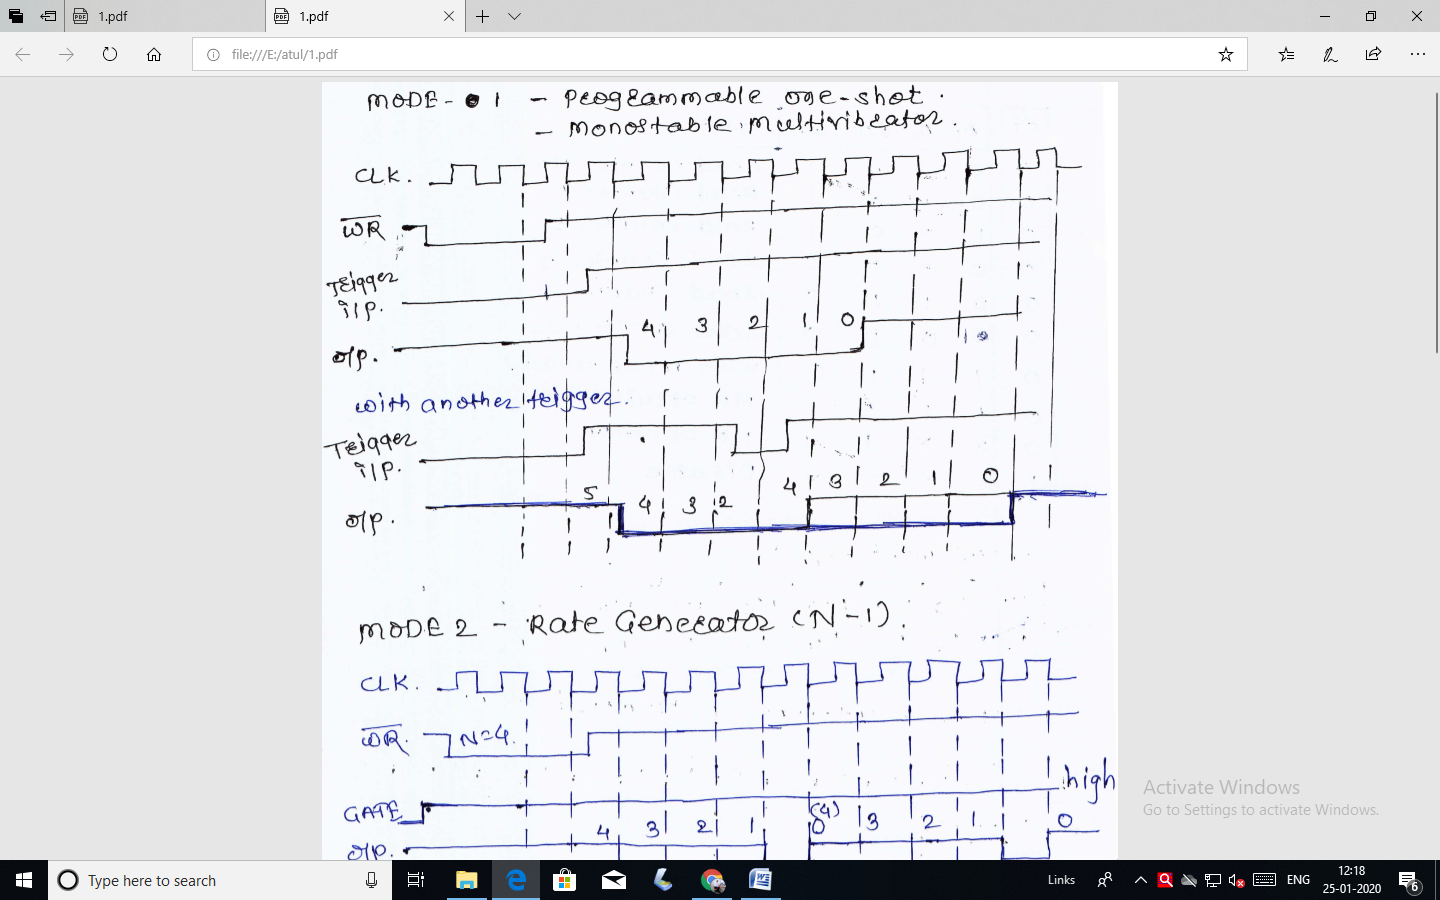 1.pdf
1.pdf
file:///E:/atul/1.pdf
MODE - 1 - Programmable one-shot.
- Monostable Multivibrator.
CLK.
WR
Trigger
i/p.
4 3 2 1 0
o/p.
with another trigger.
Trigger
i/p.
5 4 3 2 4 3 2 1 0
o/p.
MODE 2 - Rate Generator (N-1).
CLK.
WR. N=4.
high
GATE
(4)
4 3 2 1 0 3 2 1 0
o/p.
Activate Windows
Go to Settings to activate Windows.
Type here to search
Links
ENG
12:18
25-01-2020
6